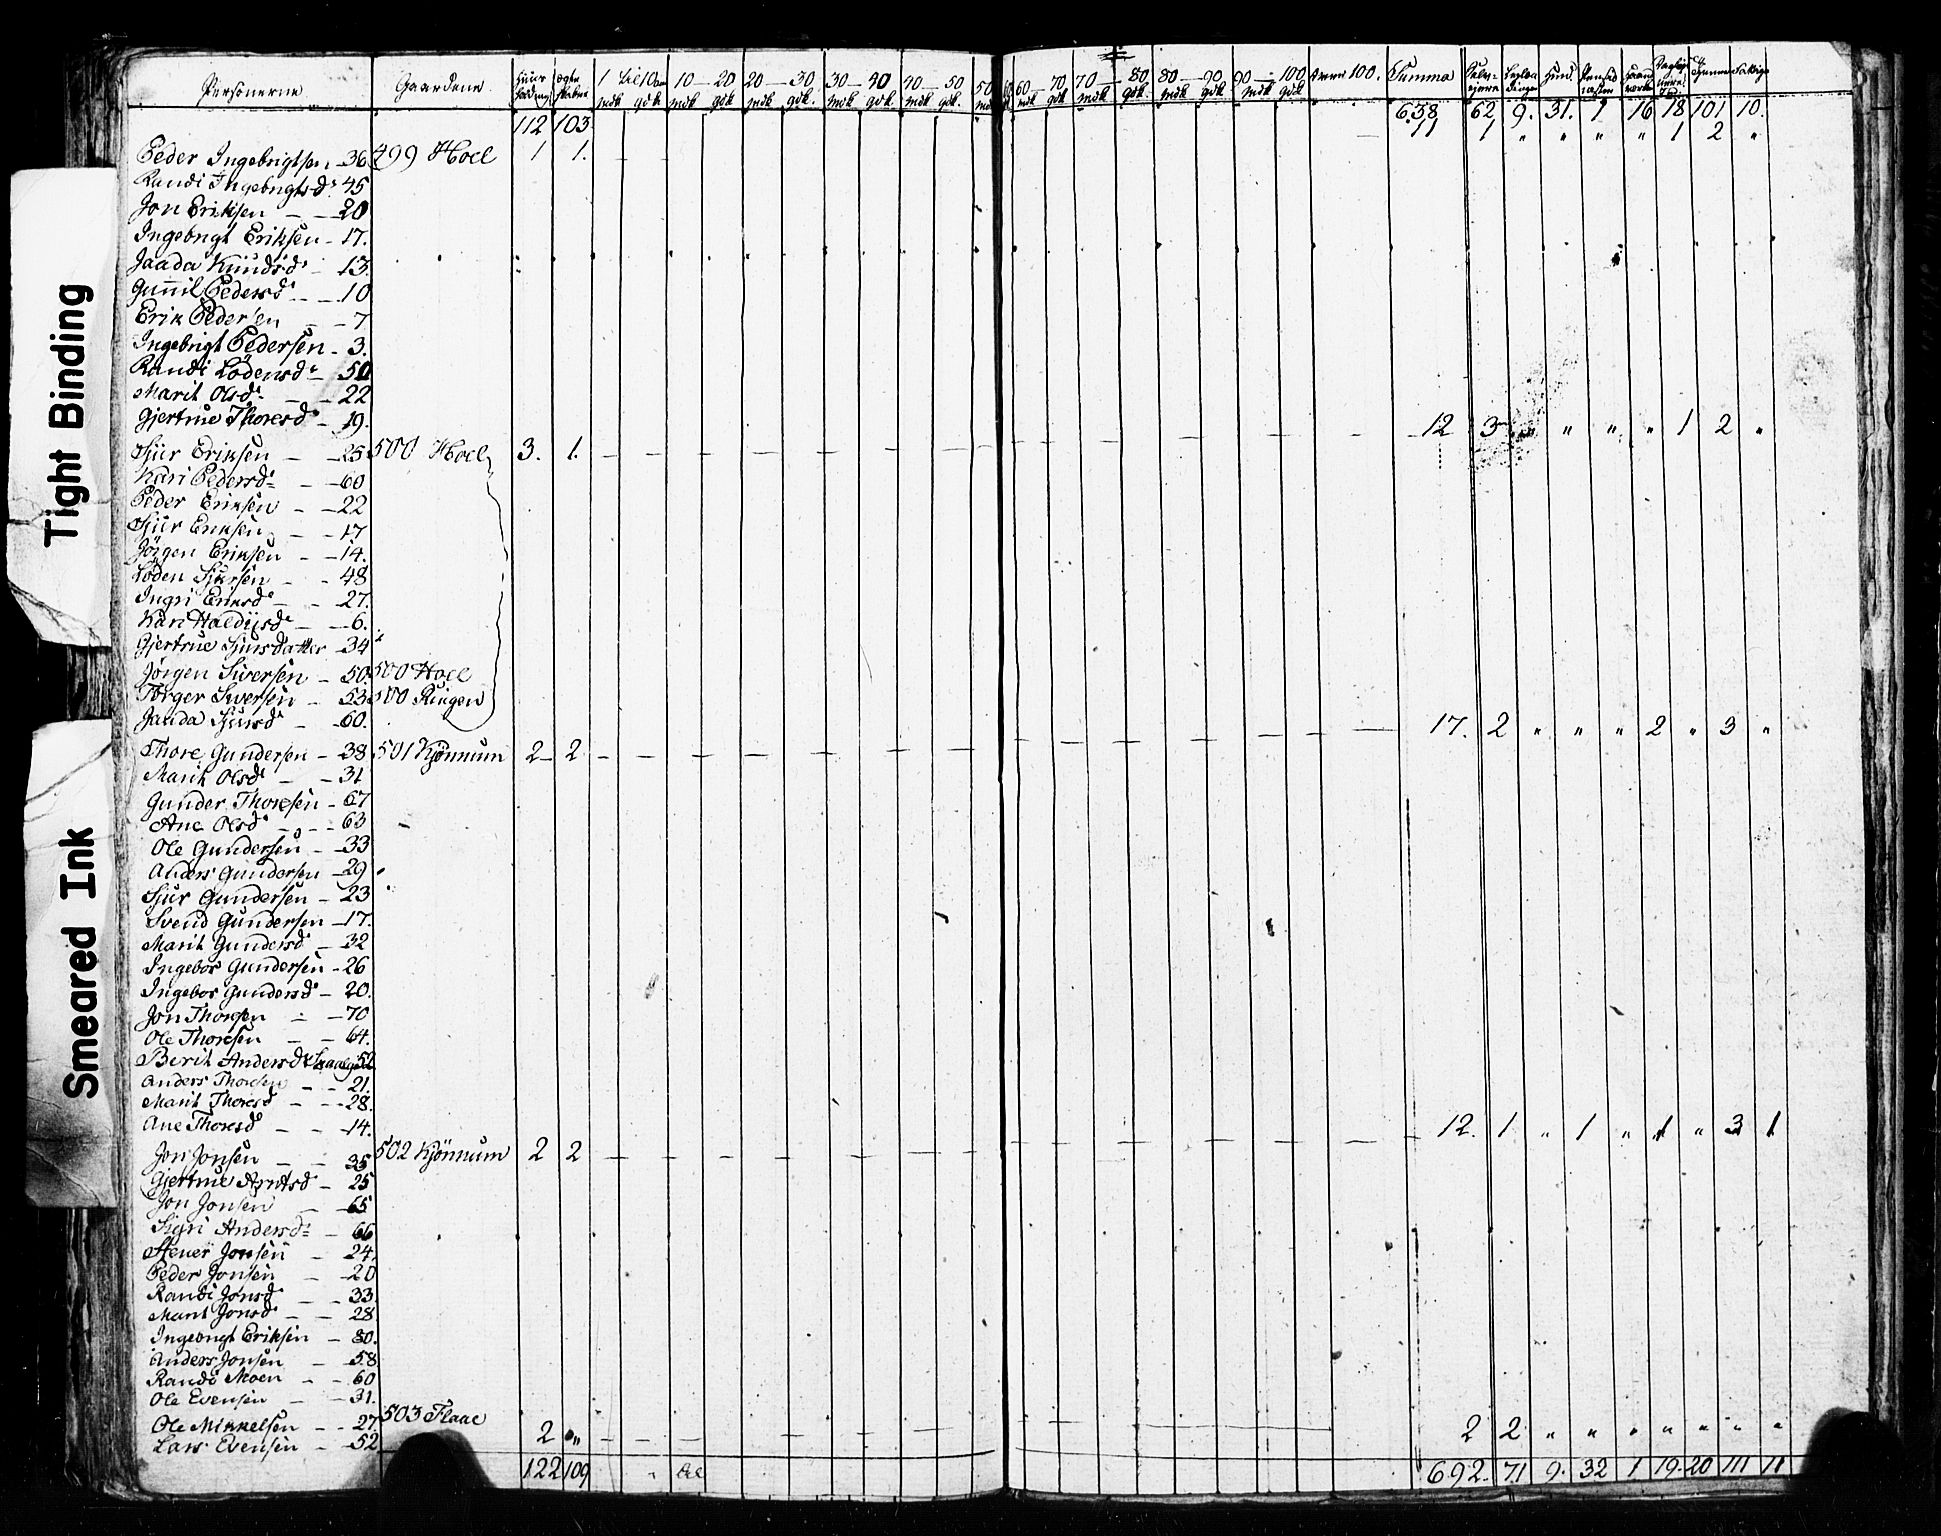 Personerne Gaardene 1 til 10 Aar 10 — 20 20 — 30 30 — 40 40 — 50 50 60 70 70 — 80 80 — 90 90 — 100 over 100. Summa
mdk gdk mdk gdk mdk gdk. mdk gdk. mdk gdk. mdk mdk gdk mdk gdk. mdk gdk. mdk gdk
112 103 638 62 9. 31. 1 16 18 101 10.
Peder Ingebrigtsen - 36 499 Hoel 1 1. — — 11 1 " " " " 1 2 "
Randi Ingebrigtsd. 45
Jon Eriksen — — 20
Ingebrigt Eriksen - 17.
Jaada Knudsd. - 13
Gunil Pedersd. — 10
Erik Pedersen — - 7
Ingebrigt Pedersen - 3.
Randi Lödensd. — 50
Marit Olsd. — — 22
Gjertrue Thoresd. - 19.
Sjur Eriksen — — 25 500 Hoel 3. 1. — — — 12 3 " " " " 1 2 "
Kari Pedersd. — — 60
Peder Eriksen — — 22
Sjur Eriksen — — 17
Jörgen Eriksen — — 14.
Löden Sjursen — - 48
Ingri Eriksd. — - 27.
Kari — — 6.
Gjertrue Sjursdatter — 34
Jörgen Siversen — 50 500 Hoel
Torger Siversen — 53 500 Ringen
Jaada Sjursd. — — 60.
Thore Gundersen — 38 501 Kjönnum 2 — 2 — — — 17. 2 " " " 2 " 3 "
Marit Olsd. — — 31
Gunder Thoresen — 67
Ane Olsd. — — 63
Ole Gundersen — — 33
Anders Gundersen — 29
Sjur Gundersen — 23
Svend Gundersen — 17.
Marit Gundersd. — 32
Ingebor Gundersen — 26
Ingebor Gundersd. — 20.
Jon Thoresen — — 70
Ole Thoresen — — 64.
Berit Andersd. 52
Anders Thoresen — — 21.
Marit Thoresd. — — 28.
Ane Thoresd. — — 14.
Jon Jonsen — — 35 502 Kjönnum 2 2 — — — 12. 1 " 1 " 1 " 3 1
Gjertrue Arntsd. — 25
Jon Jonsen — 65
Sigri Andersd. — 66
Stener Jonsen — 24.
Peder Jonsen — 20
Randi Jonsd. — — 33
Marit Jonsd. — — 28
Ingebrigt Eriksen — 80.
Anders Jonsen — 58
Randi Moen — — 60
Ole Evensen — — 31.
Ole Mikkelsen — — 27 503 Flaae
Lars Evensen — 52 2 " — — — 2 2 " " " " " " "
122 109 692. 71 9. 32 1 19. 20 111 11
Tight Binding
Smeared Ink